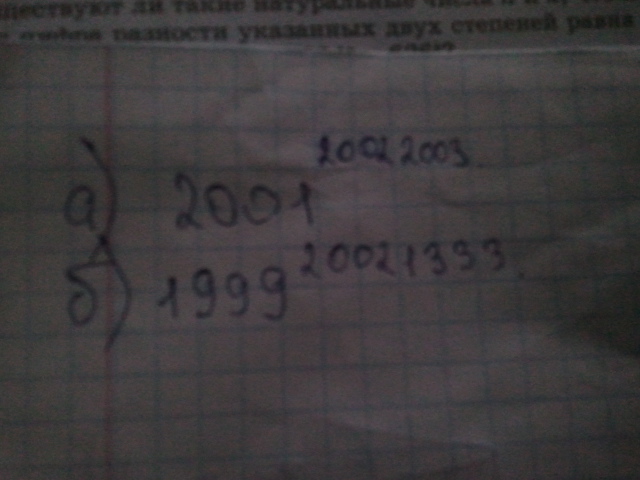 ществуют ли такие натуральные числа
разности указанных двух степеней равна
а) 2001^20022003.
б) 1999^20021333.